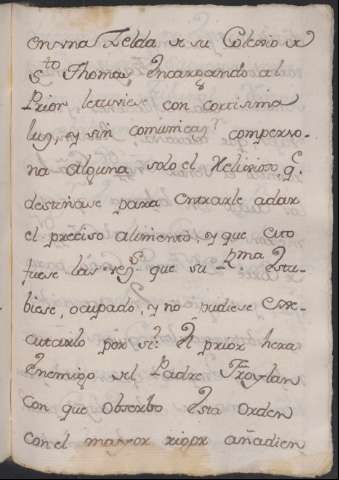 en una Zelda de su Colexio de
Sto Thomas, Encargando al
Prior letuviese con cortisima
luz, y sin comunicar compersso-
na alguna, solo el Relixioso, q.e
destinase para entrarle adar
el preciso alimento, y que esto
fuese las vezs que su Rma Estu-
biese, ocupado, y no pudiese exe-
cutarlo por si: El prior hera
Enemigo del Padre Froylan
con que obserbo Esta Orden
con el mayor rigor añadien